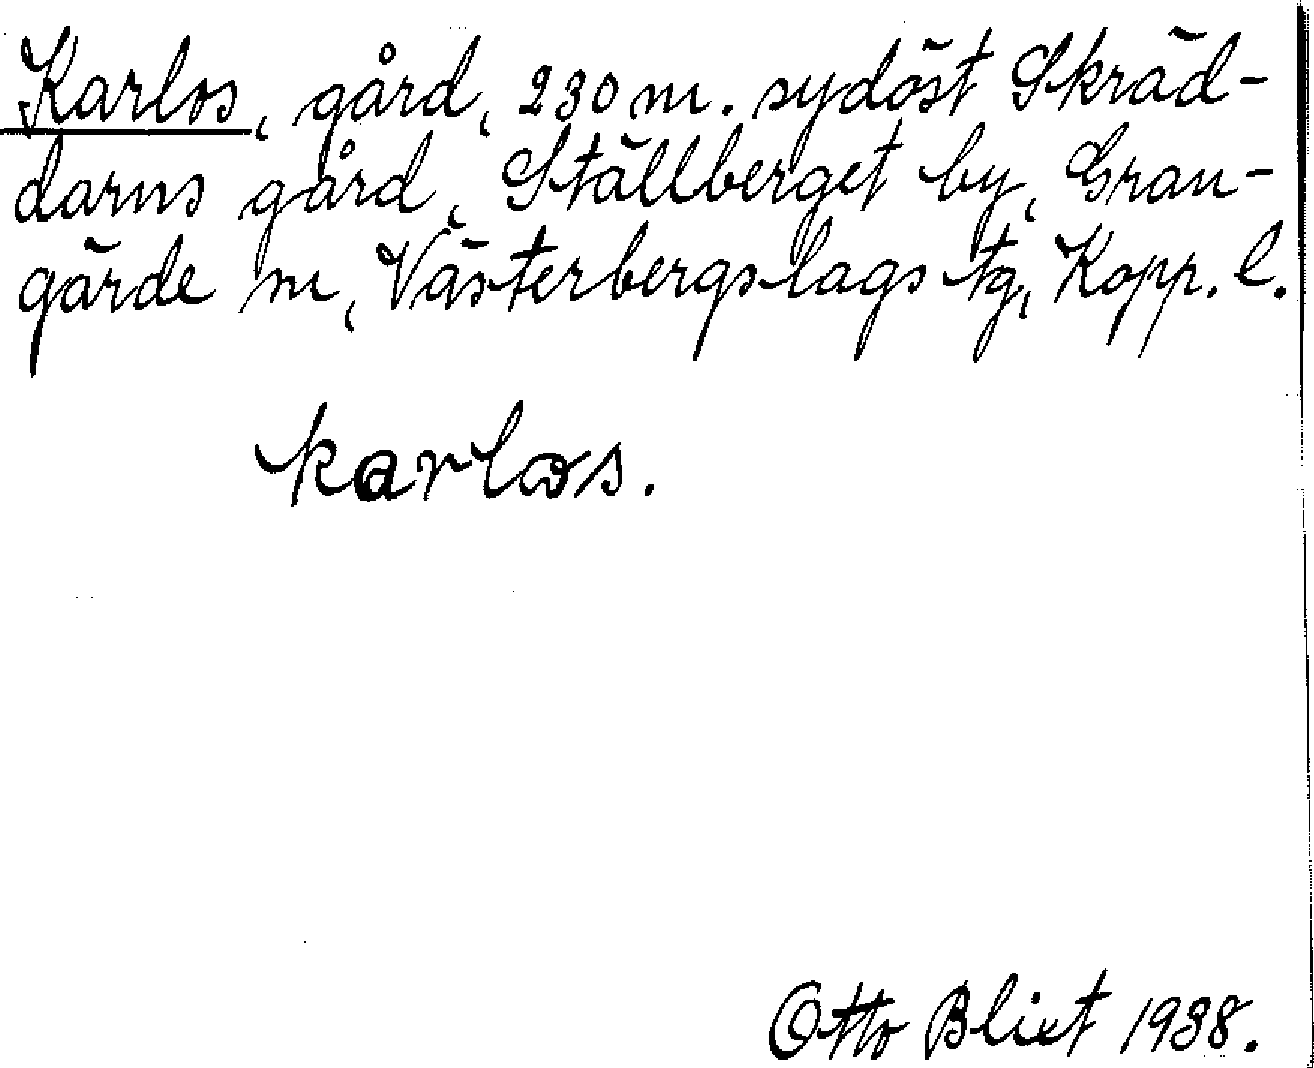 Karlos, gård, 230 m. sydöst Skräd-
darns gård, Ställberget by, Gran-
gärde sn, Västerbergslags tg, Kopp. l.
karlos.
Otto Blixt 1938.